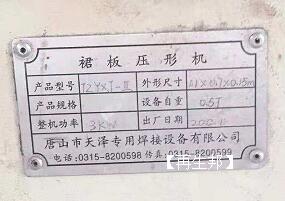 裙板压形机
产品型号 TZYXJ-II 外形尺寸
产品规格 设备自重 0.5T
整机功率 3KW 出厂日期
唐山市天泽专用焊接设备有限公司
电话:0315-8200598 传真:0315-8200599
【再生邦】